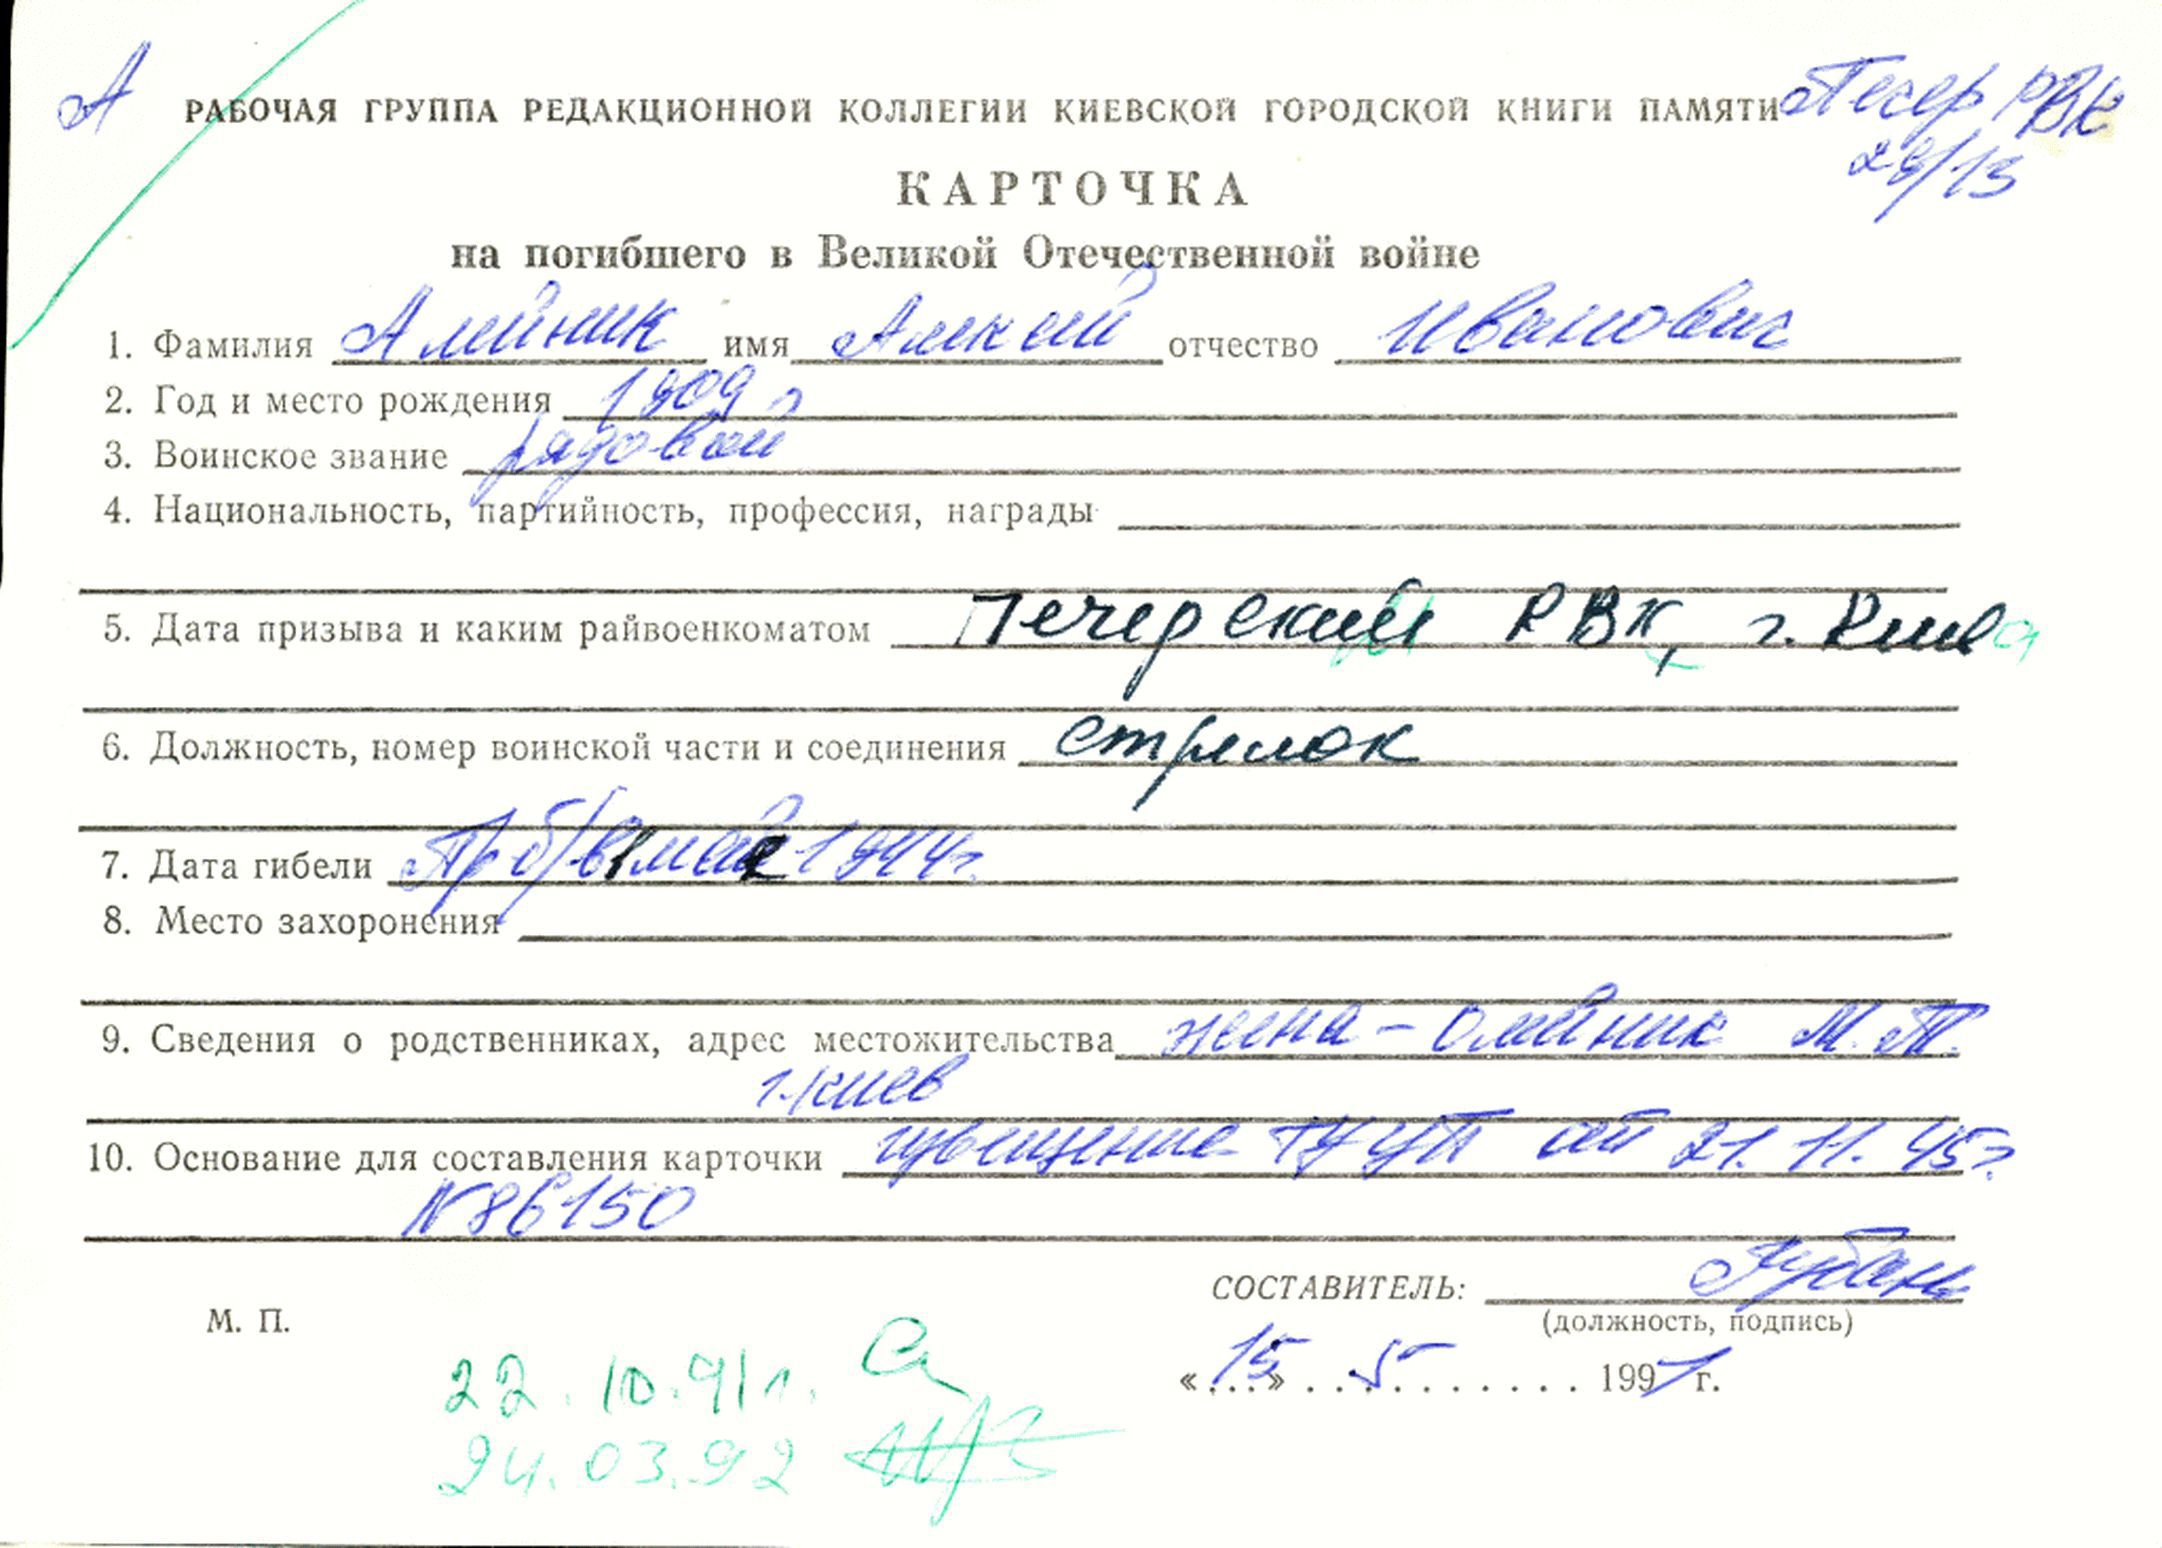 А
РАБОЧАЯ ГРУППА РЕДАКЦИОННОЙ КОЛЛЕГИИ КИЕВСКОЙ ГОРОДСКОЙ КНИГИ ПАМЯТИ Печер РВК
29/13
КАРТОЧКА
на погибшего в Великой Отечественной войне
1. Фамилия Алейник имя Алексей отчество Иванович
2. Год и место рождения 1909
3. Воинское звание рядовой
4. Национальность, партийность, профессия, награды
5. Дата призыва и каким райвоенкоматом Печерский РВК, г. Киева
6. Должность, номер воинской части и соединения стрелок
7. Дата гибели Пр б/в мае 1944г.
8. Место захоронения
9. Сведения о родственниках, адрес местожительства жена – Олейник М.Т.
г. Киев
10. Основание для составления карточки извещение ГУУП от 21.11.45г
N86150
СОСТАВИТЕЛЬ:
(должность, подпись)
М. П.
«15» 5 1991 г.
22.10.91г.
24.03.92